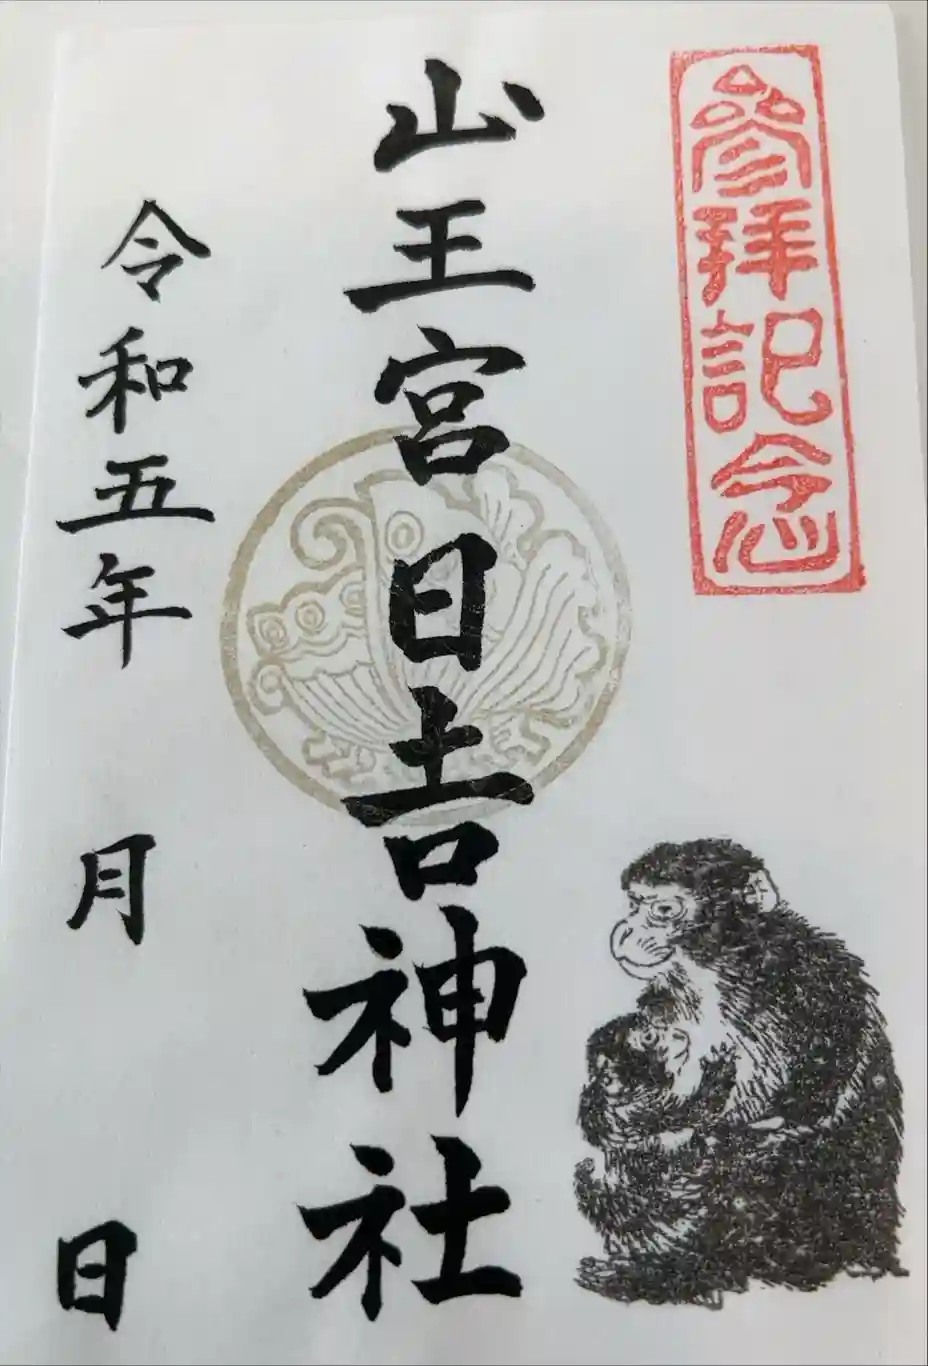 参拝記念
山王宮日吉神社
令和五年 月 日